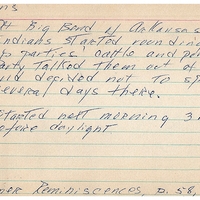 ns
At Big Bend of Arkansas
Indians started roundin
up parties cattle and pe
arty talked them out of
uld decided not to sp
several days there.
Started next morning 3
before daylight
Reminiscences, p. 58,